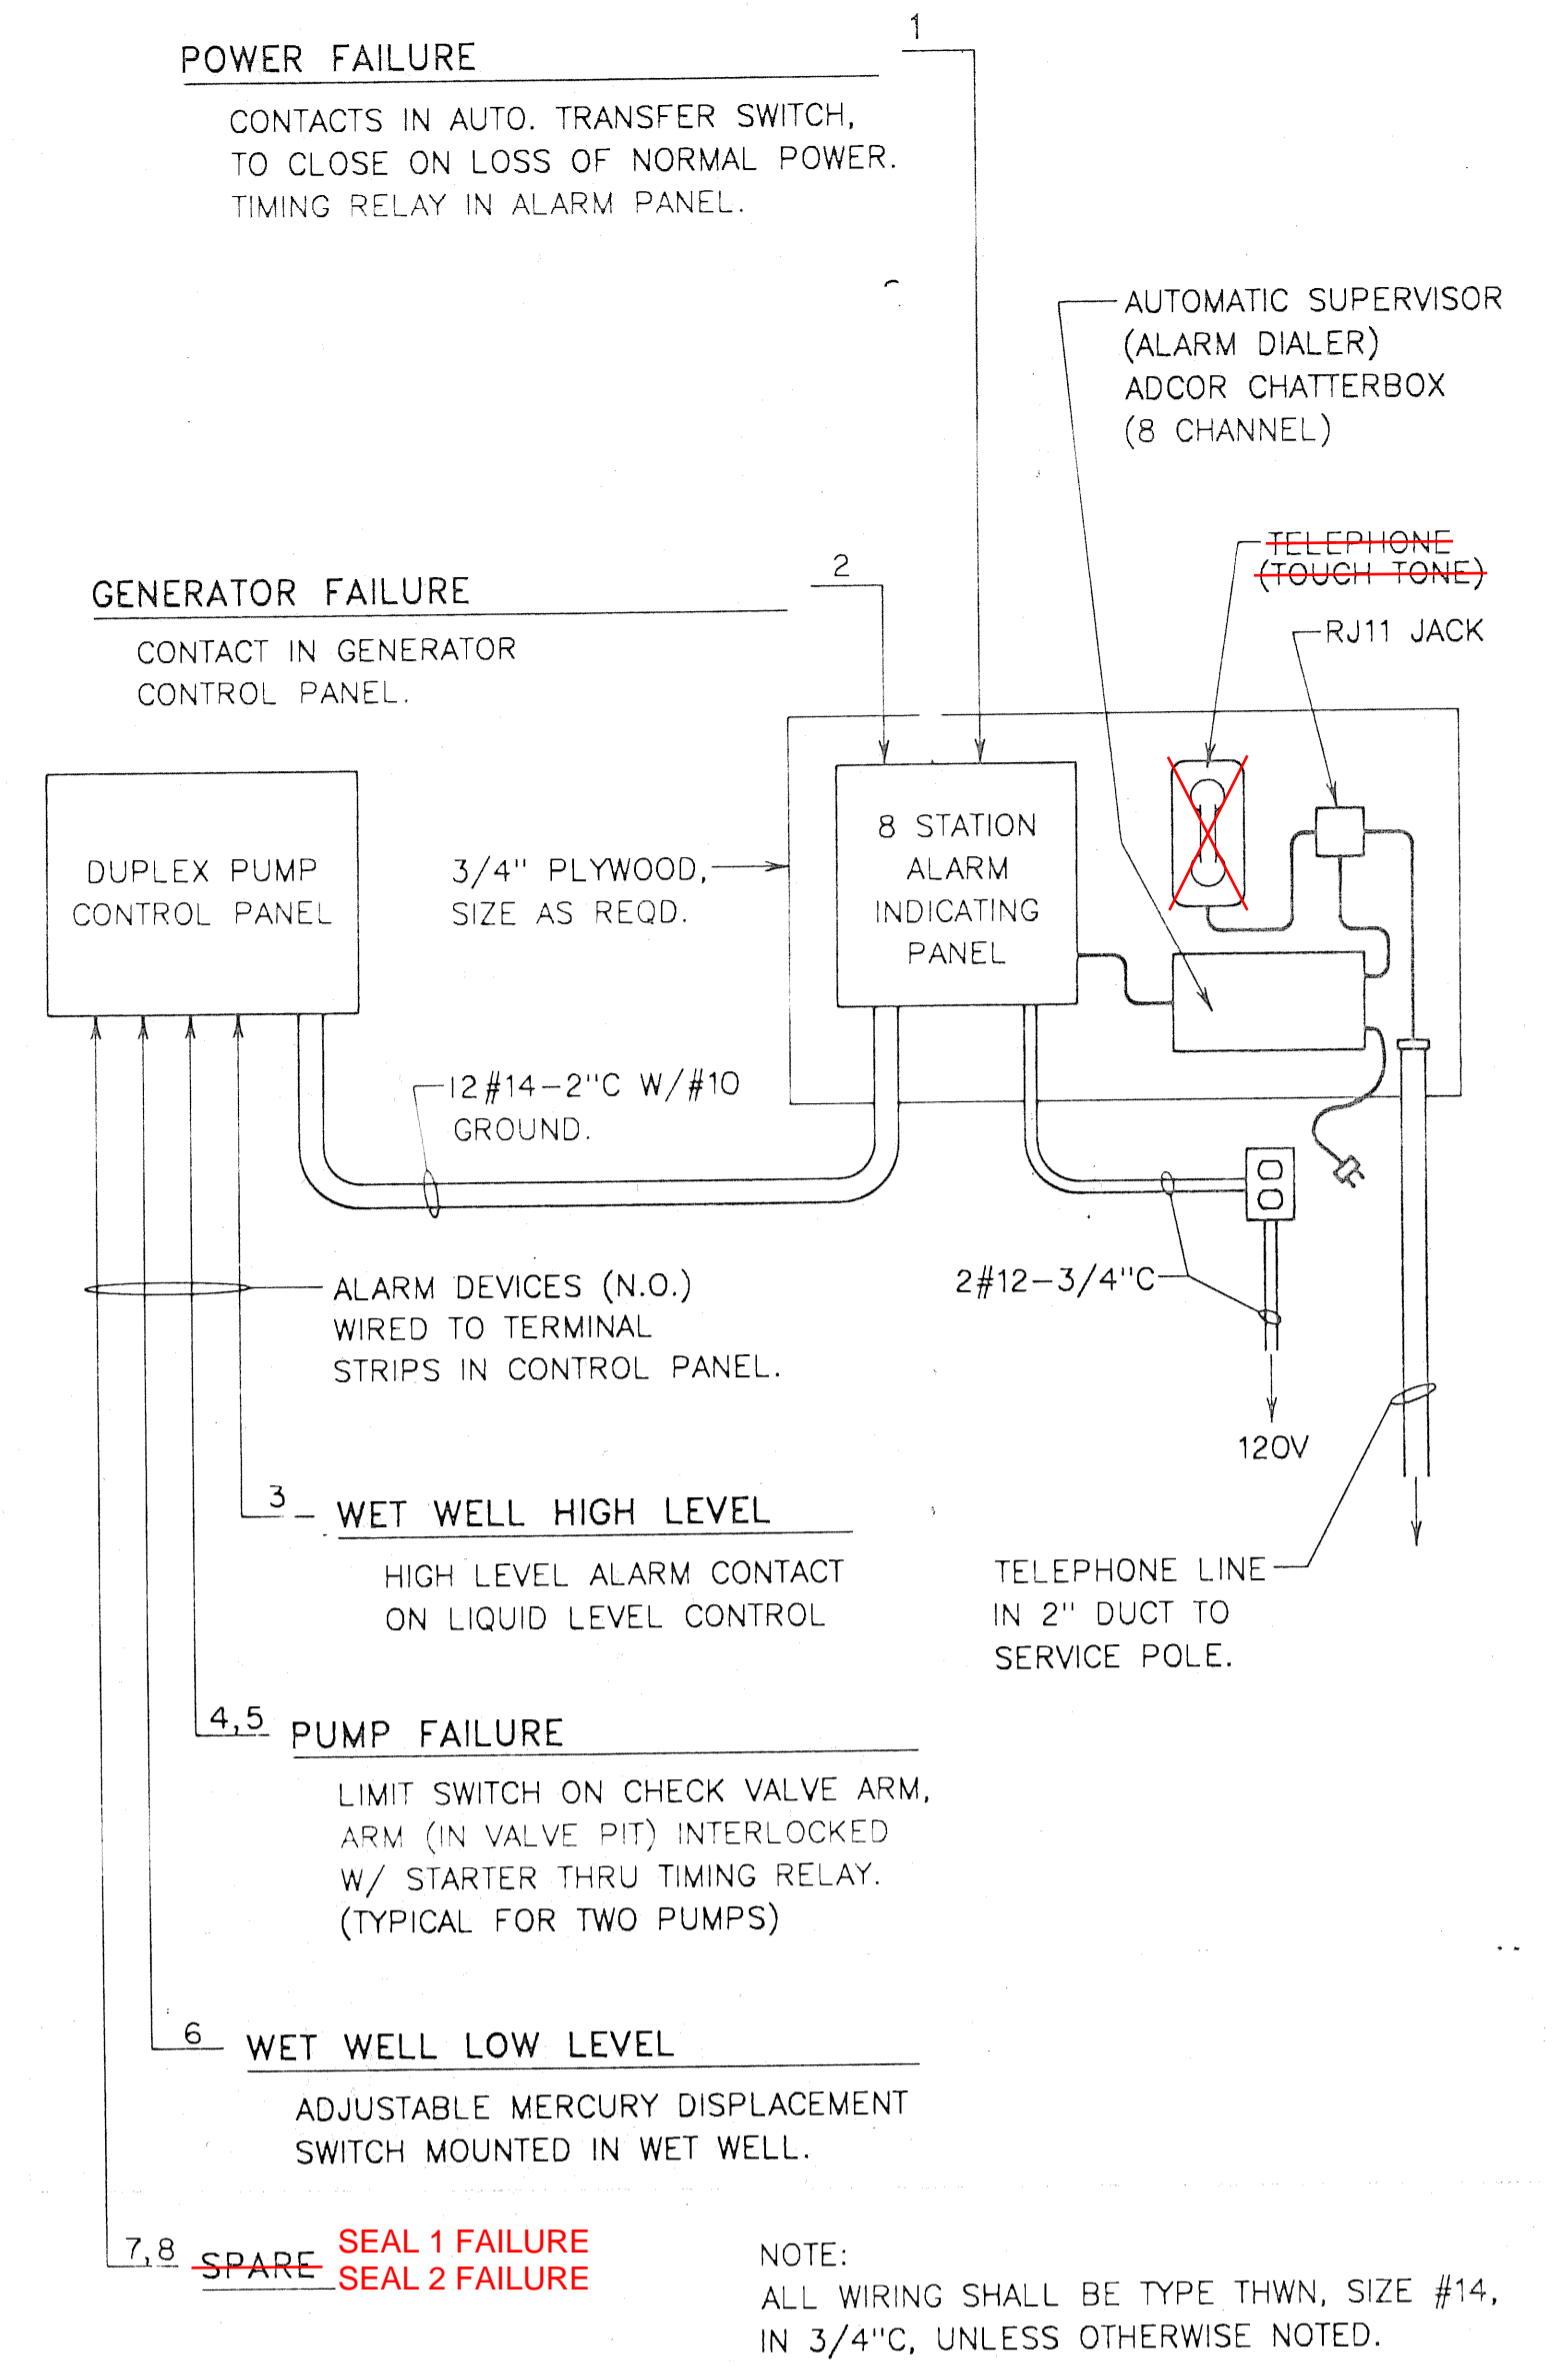 1
POWER FAILURE
CONTACTS IN AUTO. TRANSFER SWITCH,
TO CLOSE ON LOSS OF NORMAL POWER.
TIMING RELAY IN ALARM PANEL.
AUTOMATIC SUPERVISOR
(ALARM DIALER)
ADCOR CHATTERBOX
(8 CHANNEL)
TELEPHONE
(TOUCH TONE)
RJ11 JACK
2
GENERATOR FAILURE
CONTACT IN GENERATOR
CONTROL PANEL.
DUPLEX PUMP
CONTROL PANEL
3/4" PLYWOOD,
SIZE AS REQD.
8 STATION
ALARM
INDICATING
PANEL
12#14-2"C W/#10
GROUND.
ALARM DEVICES (N.O.)
WIRED TO TERMINAL
STRIPS IN CONTROL PANEL.
2#12-3/4"C
120V
3
WET WELL HIGH LEVEL
HIGH LEVEL ALARM CONTACT
ON LIQUID LEVEL CONTROL
TELEPHONE LINE
IN 2" DUCT TO
SERVICE POLE.
4,5
PUMP FAILURE
LIMIT SWITCH ON CHECK VALVE ARM,
ARM (IN VALVE PIT) INTERLOCKED
W/ STARTER THRU TIMING RELAY.
(TYPICAL FOR TWO PUMPS)
6
WET WELL LOW LEVEL
ADJUSTABLE MERCURY DISPLACEMENT
SWITCH MOUNTED IN WET WELL.
7,8
SPARE
SEAL 1 FAILURE
SEAL 2 FAILURE
NOTE:
ALL WIRING SHALL BE TYPE THWN, SIZE #14,
IN 3/4"C, UNLESS OTHERWISE NOTED.